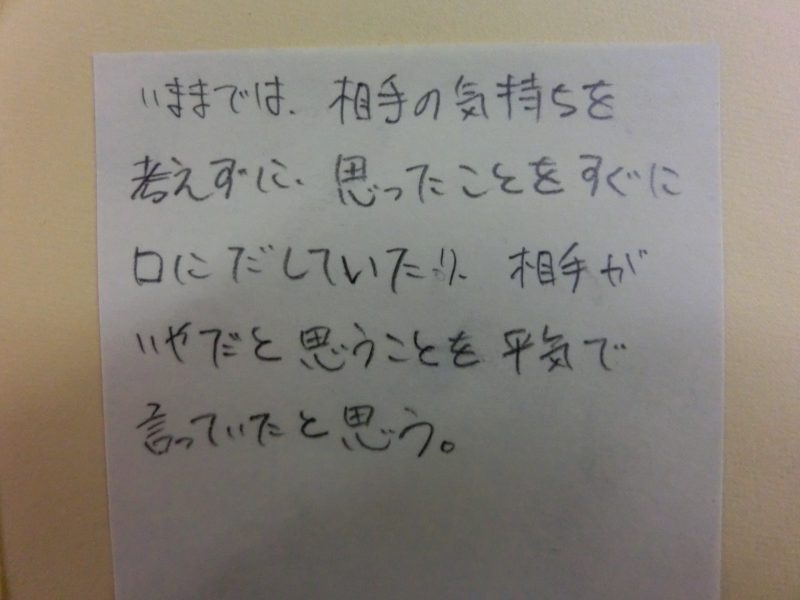 いままでは、相手の気持ちを
考えずに、思ったことをすぐに
口にだしていたり、相手が
いやだと思うことを平気で
言っていたと思う。